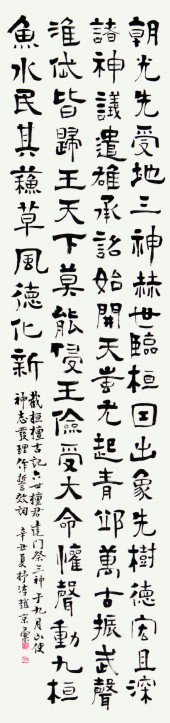 朝光先受地三神赫世臨桓因出象先樹德宏且深
諸神議遣雄承詔始開天蚩尤起青邱萬古振武聲
淮岱皆歸王天下莫能侵王儉受大命懽聲動九桓
魚水民其蘓草風德化新
載桓檀古記六世檀君達門祭三神于九月山使
神志發理作誓效詞 辛丑夏